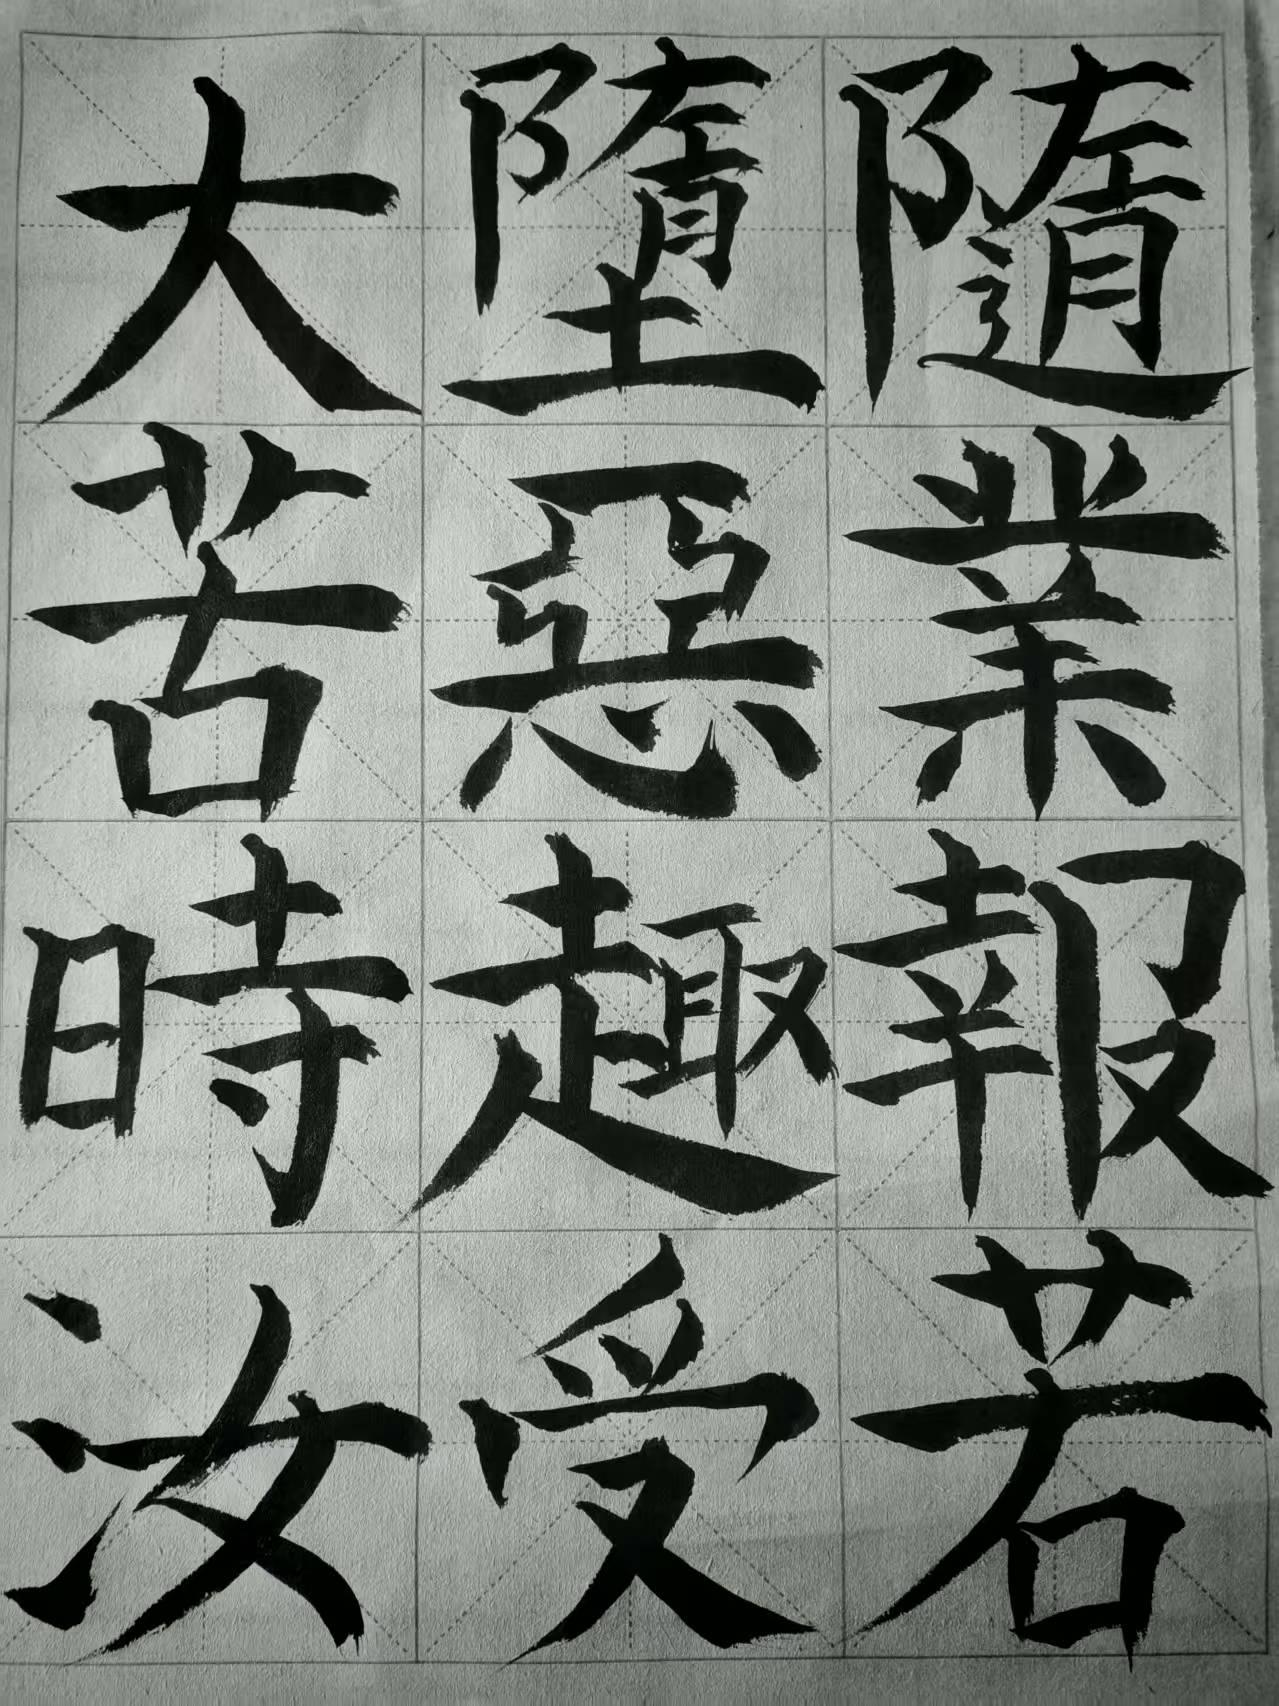 隨業報若
墮惡趣受
大苦時汝